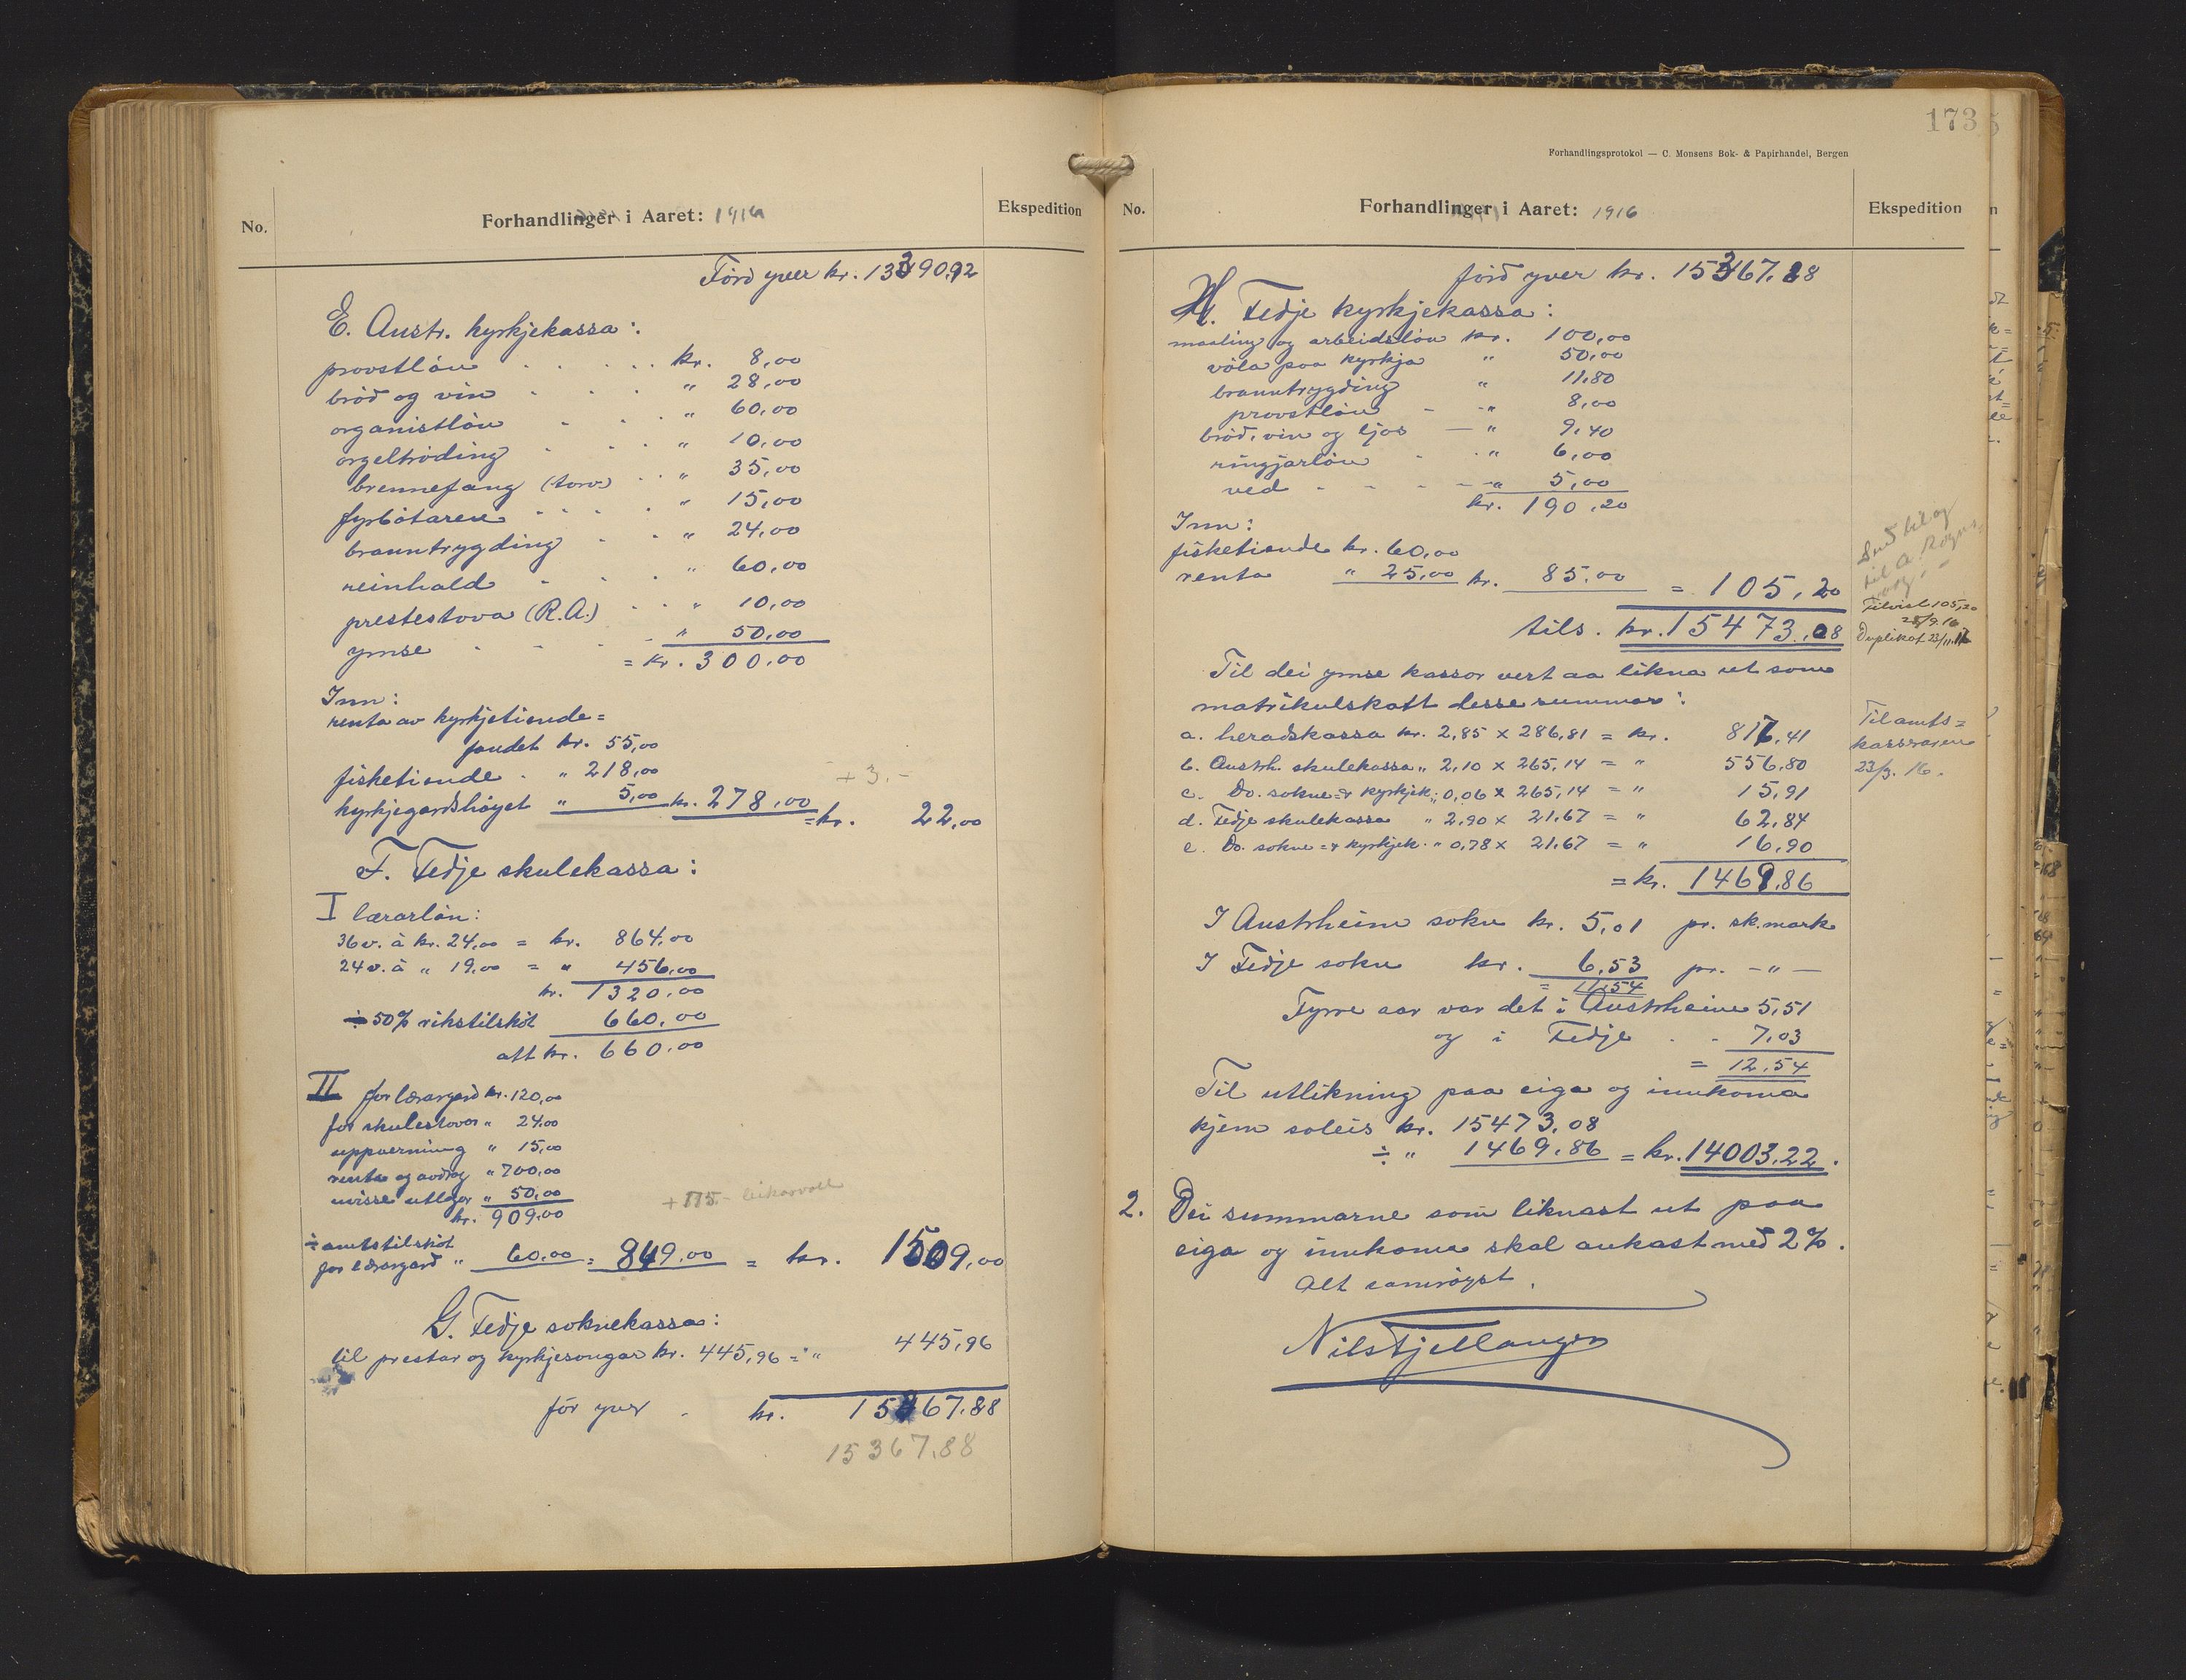 No.
Forhandlinger i Aaret: 1916
Ekspedition
Förd yver kr. 13390,92
E. Austr. kyrkjekassa:
provstlön . . . . . kr. 8,00
bröd og vin . . . „ 28,00
organistlön . . . „ 60,00
orgeltröding . . . „ 10,00
brennefang (torv) . . „ 35,00
fyrbötaren . . . . „ 15,00
branntrygding . . „ 24,00
reinhald . . . „ 60,00
prestestova (R.A.) . . „ 10,00
ymse . . . . „ 50,00
= kr. 300,00
Inn:
renta av kyrkjetiende=
fondet kr. 55,00
fisketiende . „ 218,00
+ 3.-
kyrkjegardshöyet „ 5,00 kr. 278,00 = kr. 22,00
F. Fedje skulekassa:
I lærarlön:
36 v. à kr. 24,00 = kr. 864,00
24 v. à „ 19,00 = „ 456,00
kr. 1320,00
÷ 50% rikstilsköt 660,00
att kr. 660,00
II for lærargard kr. 120,00
for skulestovor „ 24,00
uppvarming „ 15,00
renta og avdrag „ 700,00
uvisse utlogor „ 50,00
kr. 909,00
+ 115.- leikarvoll
÷ amtstilsköt
for lærargard „ 60,00 = 849,00 = kr. 1509,00
G. Fedje soknekassa:
til prestar og kyrkjesongar kr. 445,96 = „ 445,96
för yver . kr. 15367,88
15367,88
173
Forhandlingsprotokol — C. Monsens Bok- & Papirhandel, Bergen
No.
Forhandlinger i Aaret: 1916
Ekspedition
förd yver kr. 15367,88
H. Fedje kyrkjekassa:
maaling og arbeidslön kr. 100,00
völa paa kyrkja „ 50,00
branntrygding „ 11,80
provstlön - - „ 8,00
bröd, vin og ljos — „ 9,40
ringjarlön . . „ 6,00
ved - - - - „ 5,00
kr. 190,20
Inn:
fisketiende kr. 60,00
renta „ 25,00 kr. 85,00 = 105,20
tils. kr. 15473,08
Send til
til
Tilvist 105,20
28/9.16
Duplikat 23/11.16
Til dei ymse kassor vert aa likna ut som
matrikulskatt desse summar:
a. heradskassa kr. 2,85 x 286,81 = kr. 817,41
b. Austrh. skulekassa „ 2,10 x 265,14 = „ 556,80
c. Do. sokne= & kyrkjek. „ 0,06 x 265,14 = „ 15,91
d. Fedje skulekassa „ 2,90 x 21,67 = „ 62,84
e. Do. sokne= & kyrkjek. „ 0,78 x 21,67 = „ 16,90
= kr. 1469,86
Til amts=
kasseraren
23/3. 16.
I Austrheim sokn kr. 5,01 pr. sk.mark
I Fedje sokn kr. 6,53 pr. -„-
= 11,54
Fyrre aar var det i Austrheim 5,51
og i Fedje . . 7,03
= 12,54
Til utlikning paa eiga og innkoma
kjem soleis kr. 15473,08
÷ „ 1469,86 = kr. 14003,22.
2. Dei summarne som liknast ut paa
eiga og innkoma skal aukast med 2%.
Alt samröyst.
Nils Fjellanger